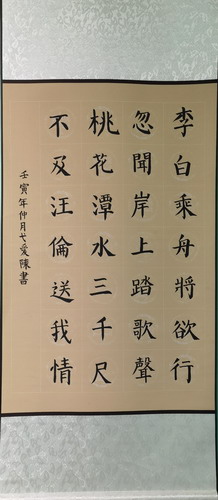 李白乘舟將欲行
忽聞岸上踏歌聲
桃花潭水三千尺
不及汪倫送我情
壬寅年仲月弋爱陳書